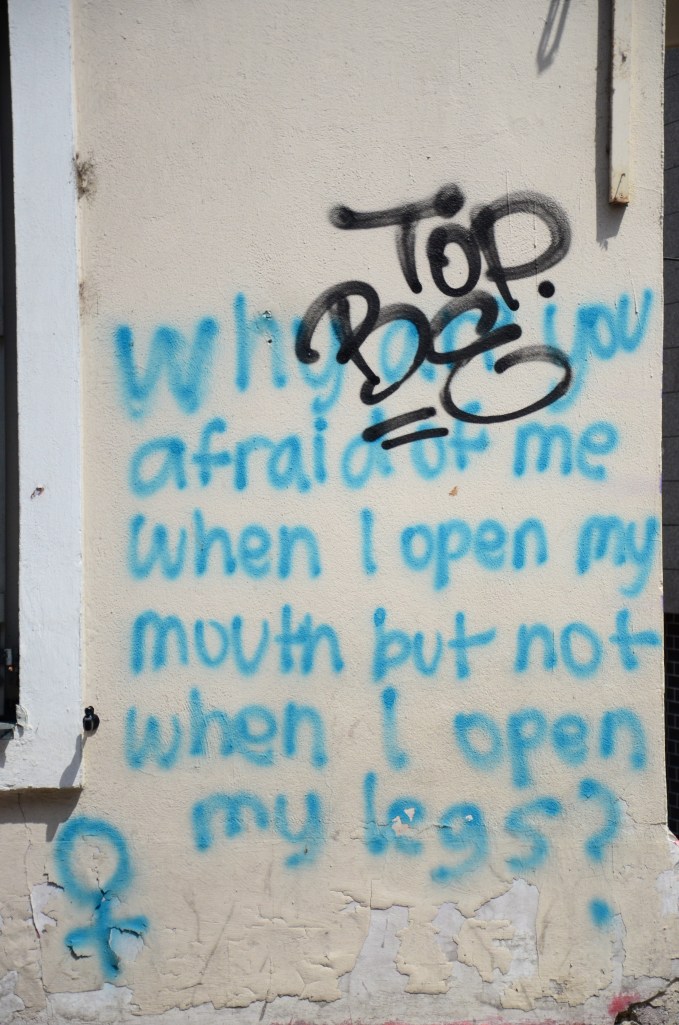 TOP.
BEG
Why are you
afraid of me
when I open my
mouth but not
when I open
my legs?